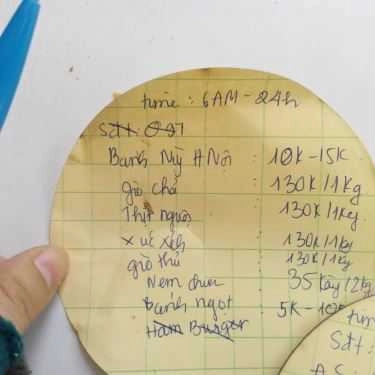 time : 6AM - 24h
Sđt:
Bánh Mỳ HNội : 10K - 15K
giò chả : 130K/1kg
Thịt nguội : 130K/1kg
xúc xích : 130K/1kg
giò thủ : 130K/1kg
Nem chua : 35
Bánh ngọt : 5K -
Ham Burger
time
Sđt: